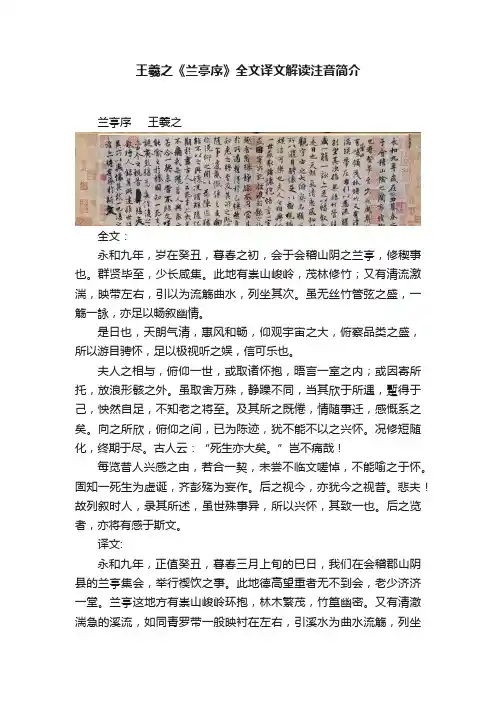 王羲之《兰亭序》全文译文解读注音简介
兰亭序 王羲之
全文：
永和九年，岁在癸丑，暮春之初，会于会稽山阴之兰亭，修稧事
也。群贤毕至，少长咸集。此地有崇山峻岭，茂林修竹；又有清流激
湍，映带左右，引以为流觞曲水，列坐其次。虽无丝竹管弦之盛，一
觞一詠，亦足以畅叙幽情。
是日也，天朗气清，惠风和畅，仰观宇宙之大，俯察品类之盛，
所以游目骋怀，足以极视听之娱，信可乐也。
夫人之相与，俯仰一世，或取诸怀抱，晤言一室之内；或因寄所
托，放浪形骸之外。虽取舍万殊，静躁不同，当其欣于所遇，蹔得于
己，怏然自足，不知老之将至。及其所之既倦，情随事迁，感慨系之
矣。向之所欣，俯仰之间，已为陈迹，犹不能不以之兴怀。况修短随
化，终期于尽。古人云：“死生亦大矣。”岂不痛哉！
每览昔人兴感之由，若合一契，未尝不临文嗟悼，不能喻之于怀。
固知一死生为虚诞，齐彭殇为妄作。后之视今，亦犹今之视昔。悲夫！
故列叙时人，录其所述，虽世殊事异，所以兴怀，其致一也。后之览
者，亦将有感于斯文。
译文:
永和九年，正值癸丑，暮春三月上旬的巳日，我们在会稽郡山阴
县的兰亭集会，举行禊饮之事。此地德高望重者无不到会，老少济济
一堂。兰亭这地方有崇山峻岭环抱，林木繁茂，竹篁幽密。又有清澈
湍急的溪流，如同青罗带一般映衬在左右，引溪水为曲水流觞，列坐